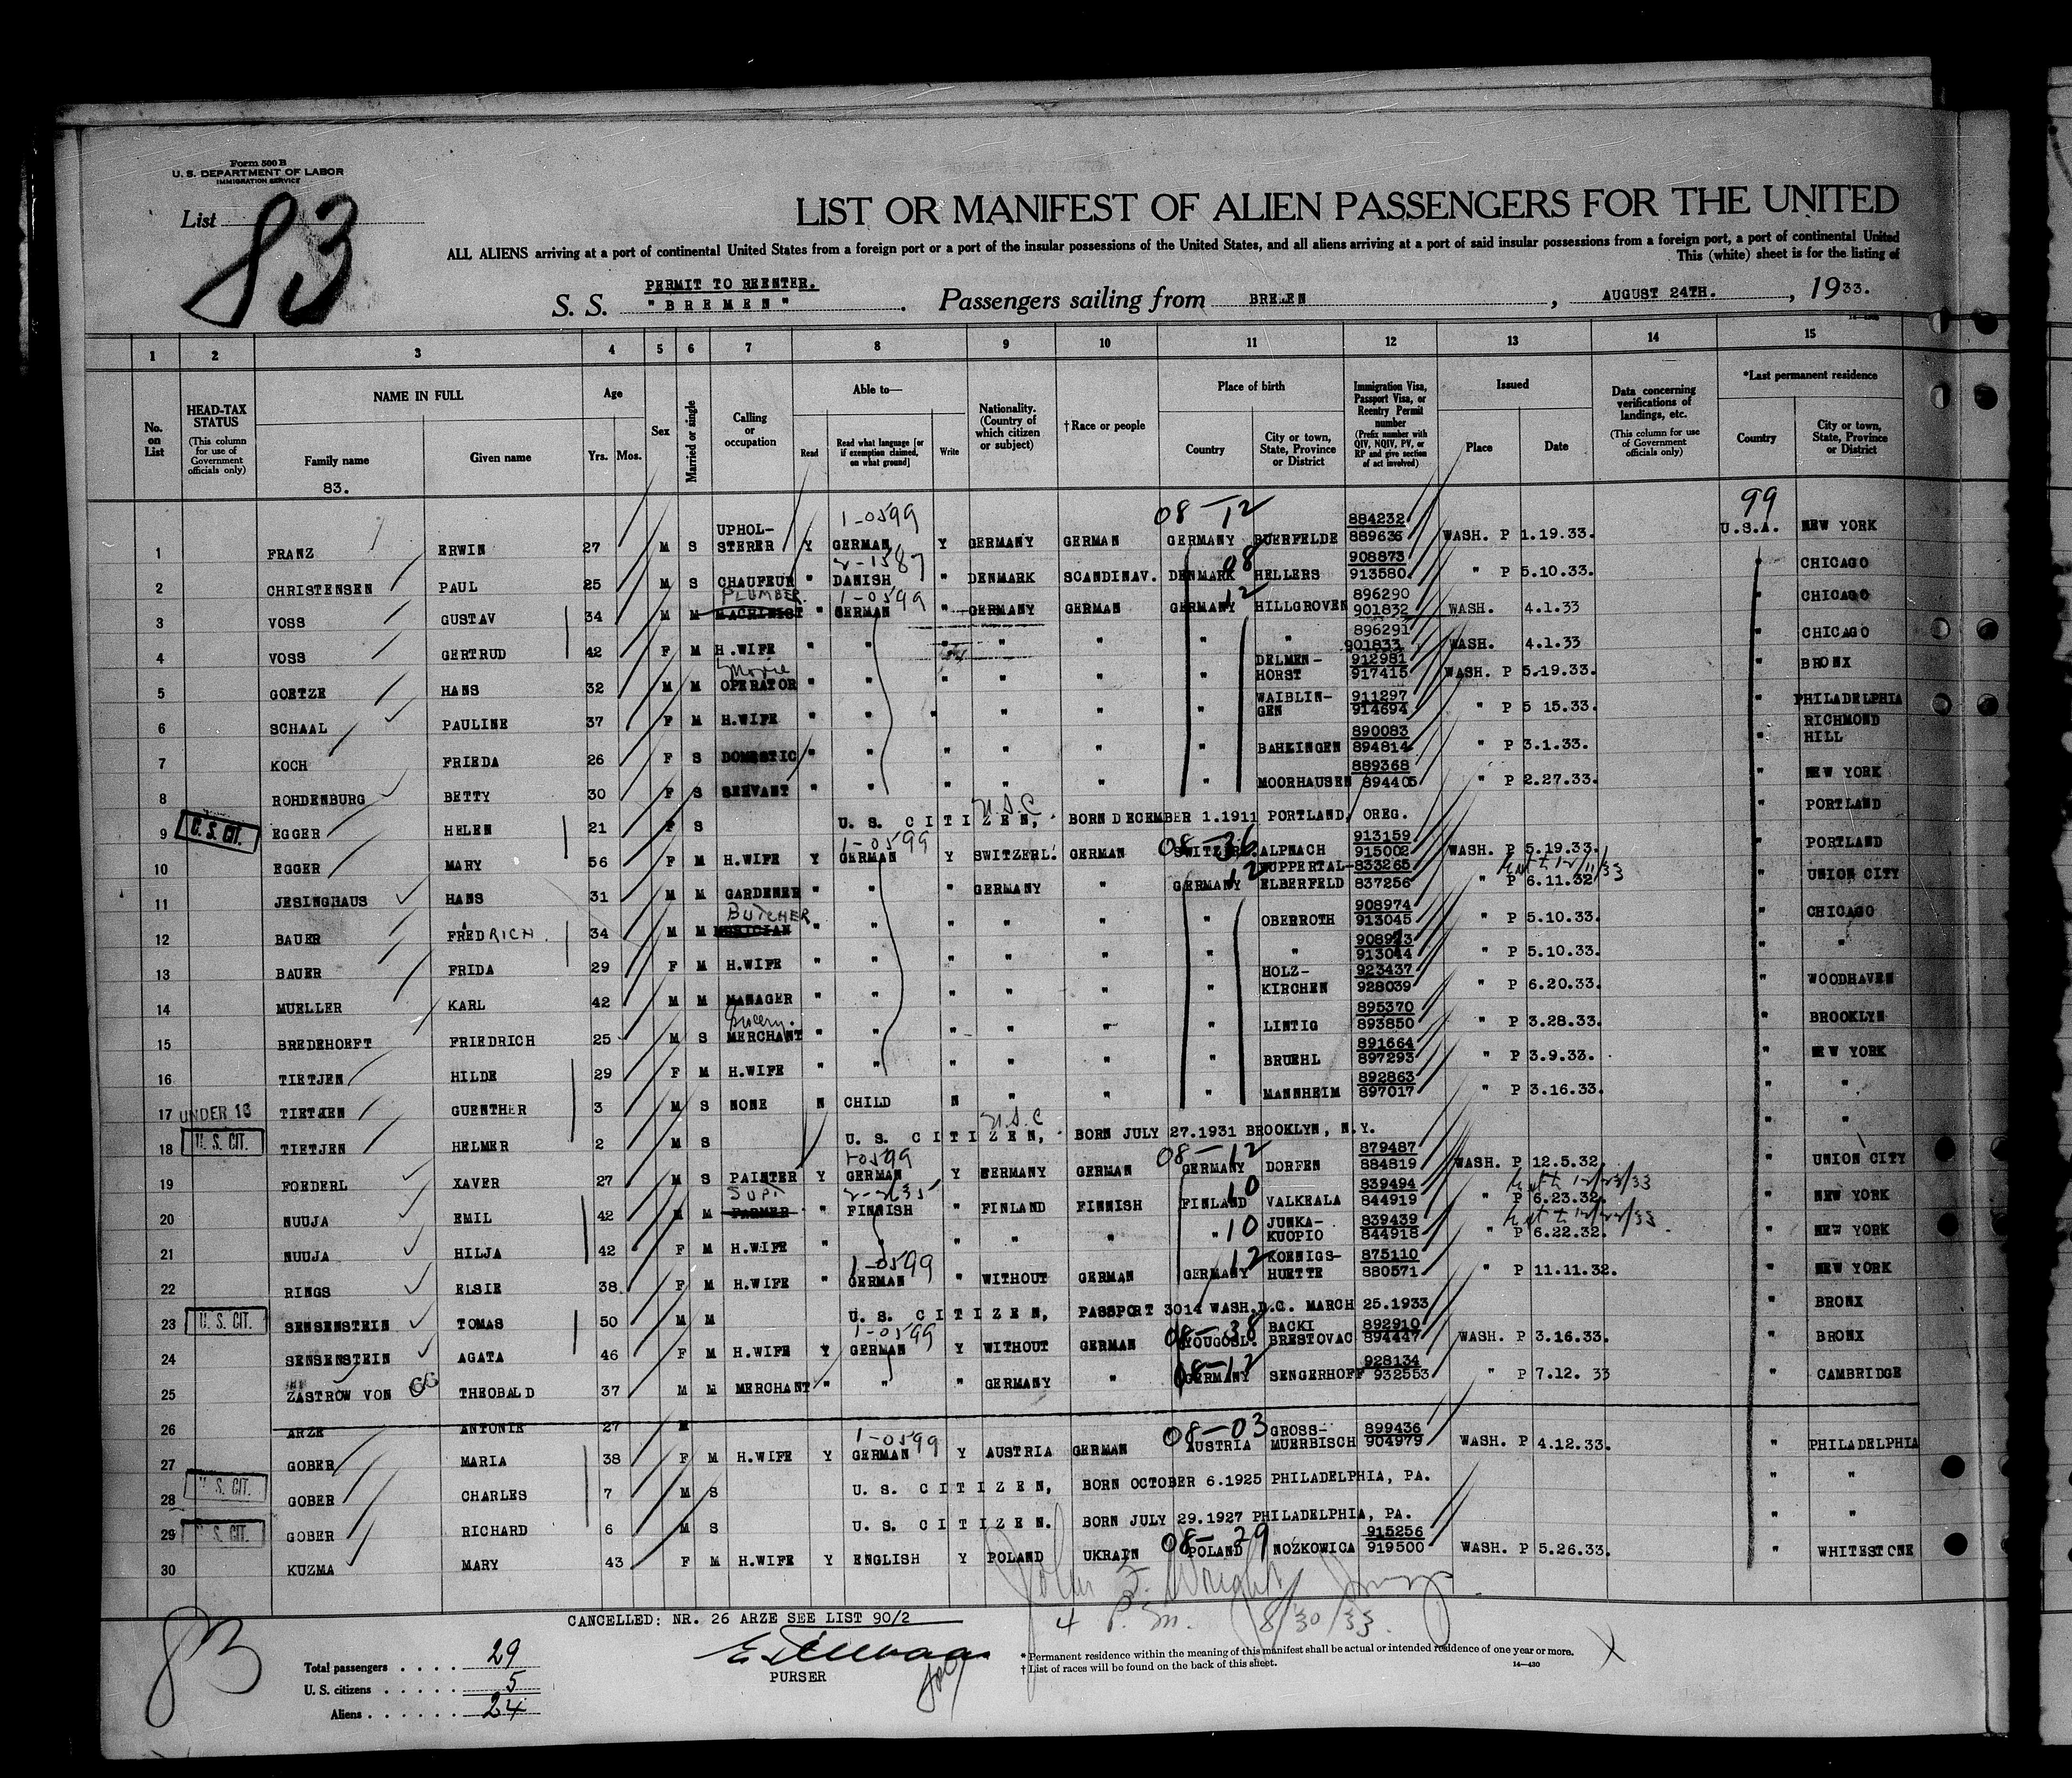 Form 500 B
U. S. DEPARTMENT OF LABOR
IMMIGRATION SERVICE
List 83
LIST OR MANIFEST OF ALIEN PASSENGERS FOR THE UNITED
ALL ALIENS arriving at a port of continental United States from a foreign port or a port of the insular possessions of the United States, and all aliens arriving at a port of said insular possessions from a foreign port, a port of continental United
This (white) sheet is for the listing of
PERMIT TO REENTER.
S. S. "BREMEN" Passengers sailing from BREMEN, AUGUST 24TH., 1933.
1 2 3 4 5 6 7 8 9 10 11 12 13 14 15
No. on List
HEAD-TAX STATUS (This column for use of Government officials only)
NAME IN FULL Family name Given name
83.
Age Yrs. Mos.
Sex
Married or single
Calling or occupation
Able to— Read Read what language [or if exemption claimed, on what ground] Write
Nationality. (Country of which citizen or subject)
†Race or people
Place of birth Country City or town, State, Province or District
Immigration Visa, Passport Visa, or Reentry Permit number (Prefix number with QIV, NQIV, PV, or RP and give section of act involved)
Issued Place Date
Data concerning verifications of landings, etc. (This column for use of Government officials only)
*Last permanent residence Country City or town, State, Province or District
1-0599 08-12 99
1 FRANZ ERWIN 27 M S UPHOL-STERER Y GERMAN Y GERMANY GERMAN GERMANY BUERFELDE 884232 889636 WASH. P 1.19.33. U.S.A. NEW YORK
2-1587 08
2 CHRISTENSEN PAUL 25 M S CHAUFEUR " DANISH " DENMARK SCANDINAV. DENMARK HELLERS 908873 913580 " P 5.10.33. " CHICAGO
PLUMBER 1-0599 12
3 VOSS GUSTAV 34 M M MACHINIST " GERMAN " GERMANY GERMAN GERMANY HILLGROVEN 896290 901832 WASH. 4.1.33 " CHICAGO
4 VOSS GERTRUD 42 F M H.WIFE " " " " " " " 896291 901833 WASH. 4.1.33 " CHICAGO
Movie
5 GOETZE HANS 32 M M OPERATOR " " " " " " DELMEN-HORST 912981 917415 WASH. P 5.19.33. " BRONX
6 SCHAAL PAULINE 37 F M H.WIFE " " " " " " WAIBLIN-GEN 911297 914694 " P 5 15.33. " PHILADELPHIA
7 KOCH FRIEDA 26 F S DOMESTIC " " " " " " BAHLINGEN 890083 894814 " P 3.1.33. " RICHMOND HILL
8 ROHDENBURG BETTY 30 F S SERVANT " " " " " " MOORHAUSEN 889368 894405 " P 2.27.33. " NEW YORK
U.S.C
9 U. S. CIT. EGGER HELEN 21 F S U. S. CITIZEN, BORN DECEMBER 1.1911 PORTLAND, OREG. " PORTLAND
1-0599 08-36
10 EGGER MARY 56 F M H.WIFE Y GERMAN Y SWITZERL. GERMAN SWITZERL. ALPNACH 913159 915002 WASH. P 5.19.33. " PORTLAND
12 12/11/33
11 JESINGHAUS HANS 31 M M GARDENER " " " GERMANY " GERMANY WUPPERTAL-ELBERFELD 833265 837256 " P 6.11.32 " UNION CITY
BUTCHER
12 BAUER FREDRICH. 34 M M MUSICIAN " " " " " " OBERROTH 908974 913045 " P 5.10.33. " CHICAGO
13 BAUER FRIDA 29 F M H.WIFE " " " " " " " 913044 " P 5.10.33. " "
14 MUELLER KARL 42 M M MANAGER " " " " " " HOLZ-KIRCHEN 923437 928039 " P 6.20.33. " WOODHAVEN
Grocery.
15 BREDEHOEFT FRIEDRICH 25 M S MERCHANT " " " " " " LINTIG 895370 893850 " P 3.28.33. " BROOKLYN
16 TIETJEN HILDE 29 F M H.WIFE " " " " " " BRUEHL 891664 897293 " P 3.9.33. " NEW YORK
17 UNDER 16 TIETJEN GUENTHER 3 M S NONE N CHILD N " " " MANNHEIM 892863 897017 " P 3.16.33. " "
U.S.C
18 U. S. CIT. TIETJEN HELMER 2 M S U. S. CITIZEN, BORN JULY 27.1931 BROOKLYN, N.Y. " "
1-0599 08-12
19 FOEDERL XAVER 27 M S PAINTER Y GERMAN Y GERMANY GERMAN GERMANY DORFEN 879487 884819 WASH. P 12.5.32. " UNION CITY
SUPT 10 12/23/33
20 NUUJA EMIL 42 M M FARMER " FINNISH " FINLAND FINNISH FINLAND VALKEALA 839494 844919 " P 6.23.32. " NEW YORK
10
21 NUUJA HILJA 42 F M H.WIFE " " " " " " JUNKA-KUOPIO 839439 844918 " P 6.22.32. " NEW YORK
1-0599 12
22 RINGS ELSIE 38. F M H.WIFE " GERMAN " WITHOUT GERMAN GERMANY KOENIGS-HUETTE 875110 880571 " P 11.11.32. " NEW YORK
23 U. S. CIT. SENSENSTEIN TOMAS 50 M M U. S. CITIZEN, PASSPORT 3014 WASH.D.C. MARCH 25.1933 " BRONX
1-0599 08-38
24 SENSENSTEIN AGATA 46 F M H.WIFE Y GERMAN Y WITHOUT GERMAN YOUGOSL. BACKI BRESTOVAC 892910 894447 WASH. P 3.16.33. " BRONX
08-12
25 ZASTROW VON THEOBALD 37 M M MERCHANT " " " GERMANY " GERMANY SENGERHOFF 928134 932553 " P 7.12. 33 " CAMBRIDGE
26 ARZE ANTONIE 27 M
1-0599 08-03
27 GOBER MARIA 38 F M H.WIFE Y GERMAN Y AUSTRIA GERMAN AUSTRIA GROSS-MUERBISCH 899436 904979 WASH. P 4.12.33. " PHILADELPHIA
28 U. S. CIT. GOBER CHARLES 7 M S U. S. CITIZEN, BORN OCTOBER 6.1925 PHILADELPHIA, PA. " "
29 U. S. CIT. GOBER RICHARD 6 M S U. S. CITIZEN. BORN JULY 29.1927 PHILADELPHIA, PA. " "
08-29
30 KUZMA MARY 43 F M H.WIFE Y ENGLISH Y POLAND UKRAIN POLAND NOZKOWICA 915256 919500 WASH. P 5.26.33. " WHITESTONE
John F. Wright
4 P.M. 8/30/33.
CANCELLED: NR. 26 ARZE SEE LIST 90/2
83
PURSER
Total passengers . . . . 29
U. S. citizens . . . . . 5
Aliens . . . . . . 24
* Permanent residence within the meaning of this manifest shall be actual or intended residence of one year or more.
† List of races will be found on the back of this sheet.
14—430